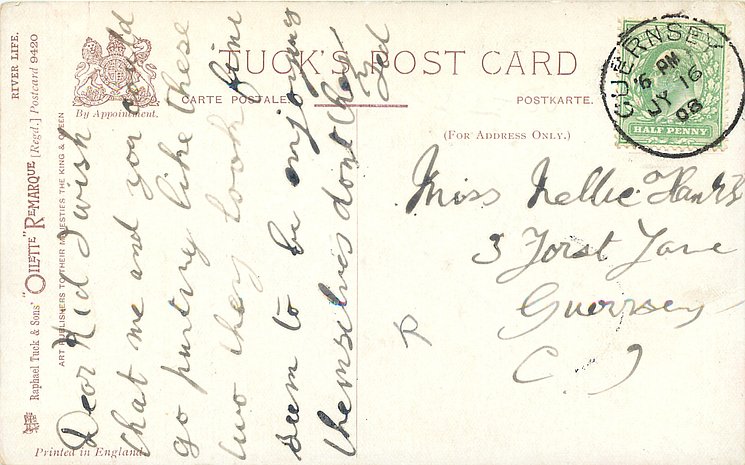 TUCK'S POST CARD
CARTE POSTALE.
POSTKARTE.
By Appointment.
(FOR ADDRESS ONLY.)
RIVER LIFE.
Raphael Tuck & Sons' "OILETTE" REMARQUE [Regd.] Postcard 9420
ART PUBLISHERS TO THEIR MAJESTIES THE KING & QUEEN
Printed in England
Dear Kid I wish
that me and you could
go punting like these
two they look fine
seem to be enjoying
themselves dont they
Ted
GUERNSEY
6 PM
JY 16
08
HALF PENNY
Miss Nellie
3 Forst Lane
Guernsey
C I